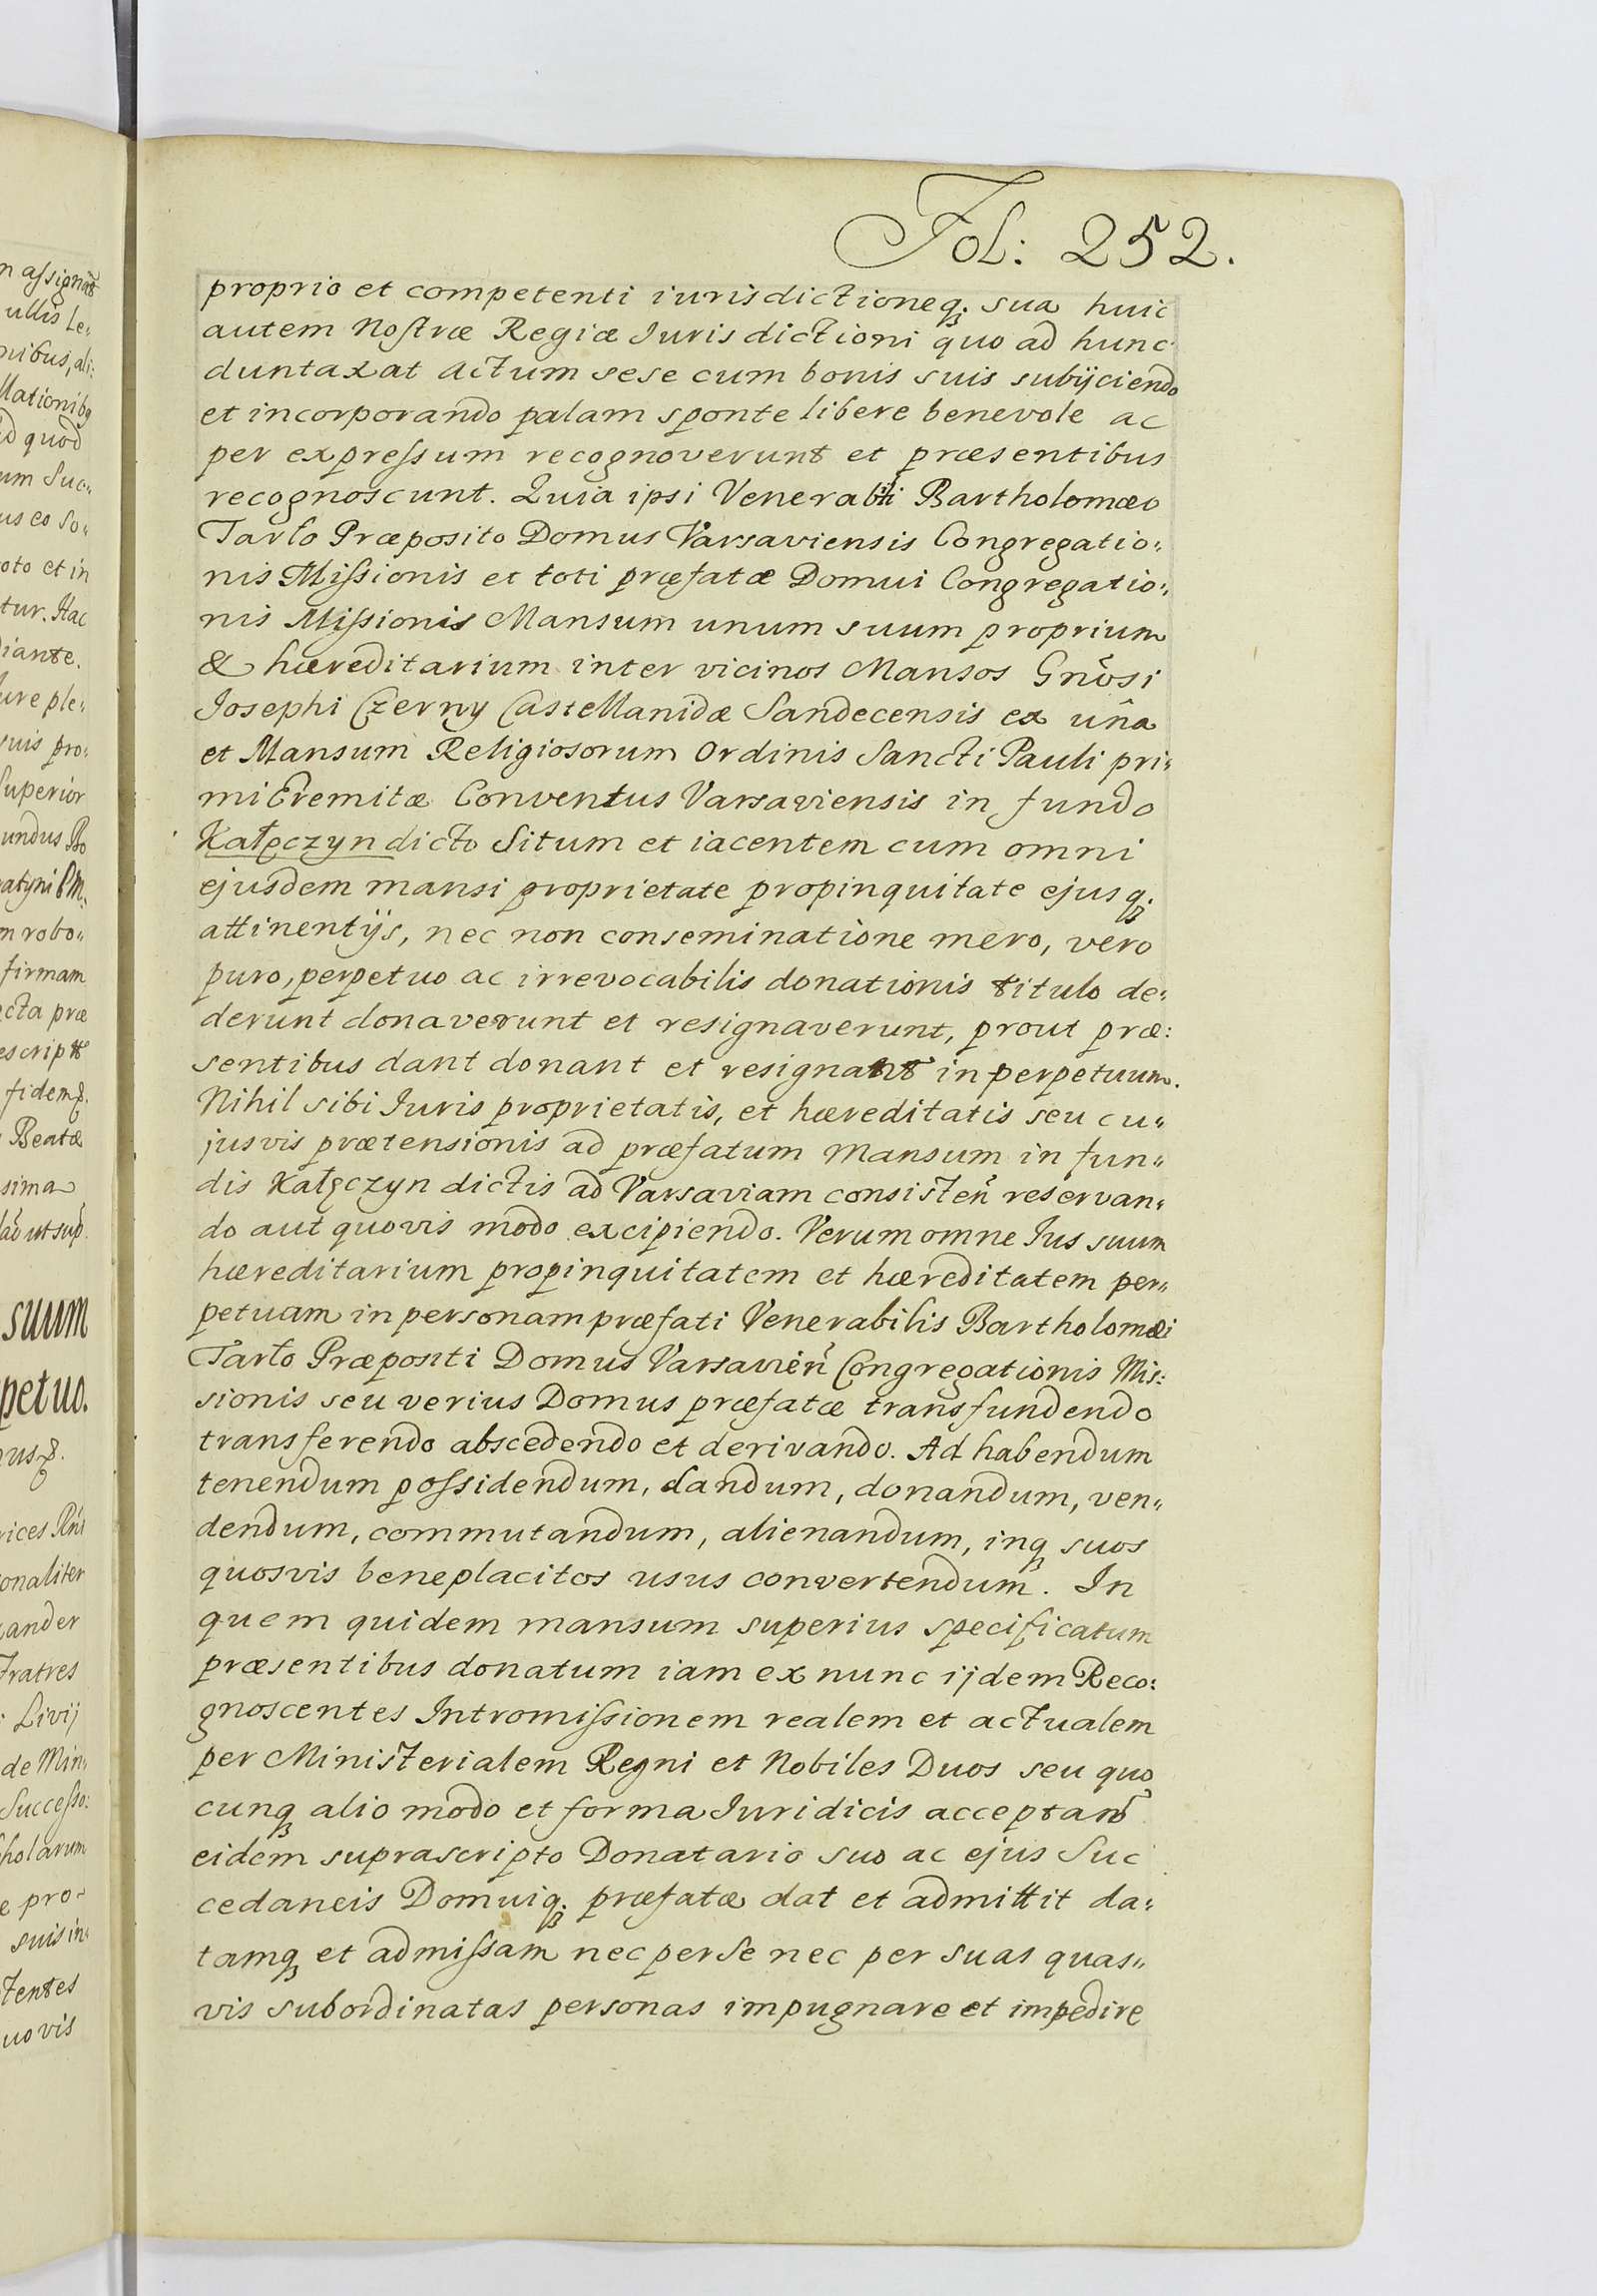 Fol: 252.
proprio et competenti iurisdictioneq; sua huic
autem Nostræ Regiæ Iurisdictioni quo ad hunc
duntaxat actum sese cum bonis suis subijciendo
et incorporando palam sponte libere benevole ac
per expressum recognoverunt et præsentibus
recognoscunt. Quia ipsi Venerabili Bartholomæo
Tarło Præposito Domus Varsaviensis Congregatio:
nis Missionis et toti præfatæ Domui Congregatio:
nis Missionis Mansum unum suum proprium
& hæreditarium inter vicinos Mansos Gnõsi
Josephi Czerny Castellanidæ Sandecensis ex unâ
et Mansum Religiosorum Ordinis Sancti Pauli pri:
mi Eremitæ Conventus Varsaviensis in fundo
Kałęczyn dicto Situm et iacentem cum omni
ejusdem mansi proprietate propinquitate ejusq;
attinentijs, nec non conseminatione mero, vero
puro, perpetuo ac irrevocabilis donationis titulo de:
derunt donaverunt et resignaverunt, prout præ:
sentibus dant donant et resignant in perpetuum.
Nihil sibi Iuris proprietatis, et hæreditatis seu cu:
jusvis prætensionis ad præfatum Mansum in fun:
dis Kałęczyn dictis ad Varsaviam consisteñ reservan:
do aut quovis modo excipiendo. Verum omne Ius suum
hæreditarium propinquitatem et hæreditatem per:
petuam in personam præfati Venerabilis Bartholomæi
Tarło Præpositi Domus Varsavieñ Congregationis Mis:
sionis seu verius Domus præfatæ transfundendo
transferendo abscedendo et derivando. Ad habendum
tenendum possidendum, dandum, donandum, ven:
dendum, commutandum, alienandum, inq; suos
quosvis beneplacitos usus convertendum. In
quem quidem mansum superius specificatum
præsentibus donatum iam ex nunc ijdem Reco:
gnoscentes Intromissionem realem et actualem
per Ministerialem Regni et Nobiles Duos seu quo
cunq; alio modo et forma Iuridicis acceptañ
eidem suprascripto Donatario suo ac ejus Suc
cedaneis Domuiq; præfatæ dat et admittit da:
tamq; et admissam nec per se nec per suas quas:
vis subordinatas personas impugnare et impedire